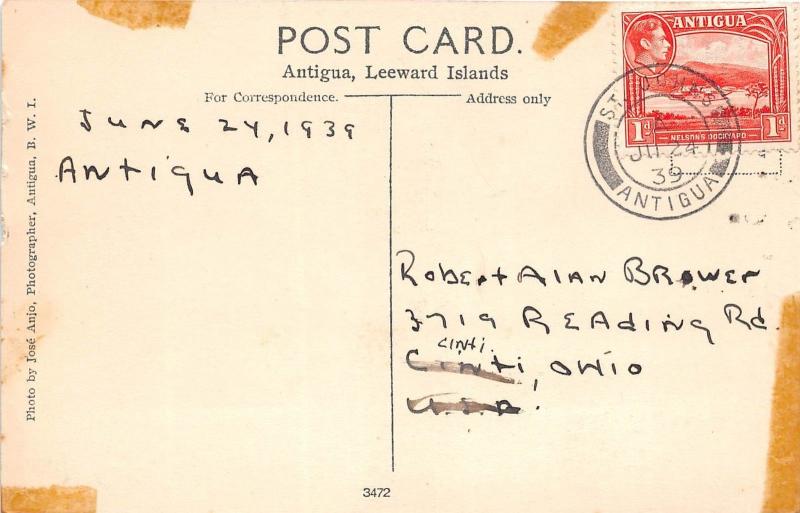 POST CARD.
Antigua, Leeward Islands
For Correspondence.
Address only
ANTIGUA
1d
NELSONS DOCKYARD
1d
ST. JOHN'S
24
39
ANTIGUA
JUNE 24, 1939
ANTIGUA
Robert Alan Brower
3719 READING Rd.
CINTI.
CINTI, OHIO
U.S.A.
Photo by José Anjo, Photographer, Antigua, B. W. I.
3472